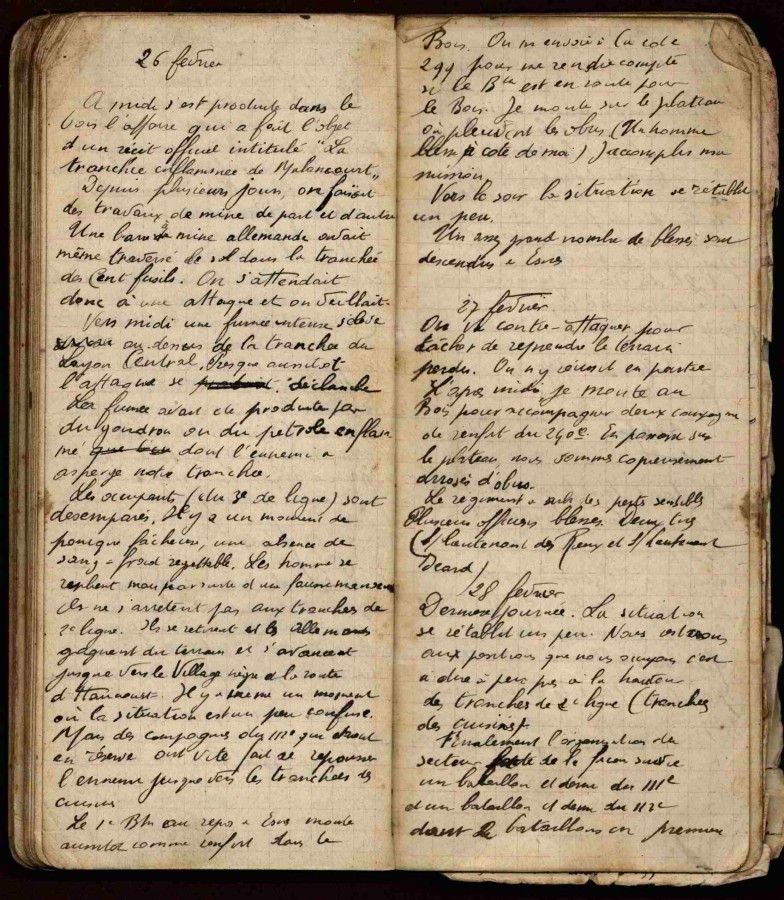 26 fevrier
A midi s'est produite dans le
bois l'affaire qui a fait l'objet
d'un récit officiel intitulé "La
tranchée enflammée de Malancourt"
Depuis plusieurs jours, on faisait
des travaux de mine de part et d'autre
Une barre à mine allemande avait
même traversé le sol dans la tranchée
des Cent fusils. On s'attendait
donc à une attaque et on veillait.
Vers midi une fumée intense s'élève
au dessus de la tranchée du
Layon Central. Presque aussitot
l'attaque se déclanche
La fumée avait été produite par
du goudron ou du petrole enflam
mé dont l'ennemi a
aspergé notre tranchée.
Les occupants (du 3e de ligne) sont
desemparés. Il y a un moment de
panique facheuse, une absence de
sang-froid regrettable. Les hommes se
replient mais par suite d'une fausse manœuvre
ils ne s'arretent pas aux tranchées de
2e ligne. Ils se retirent et les allemands
gagnent du terrain et s'avancent
jusque vers le Village nègre et la route
d'Haucourt. Il y a meme un moment
où la situation est un peu confuse.
Mais des compagnies du 111e qui étaient
en réserve ont vite fait de repousser
l'ennemi jusque vers les tranchées des
cuisines
Le 1e Btn au repos a Esnes monte
aussitot comme renfort dans le
Bois. On m'envoie à la cote
299 pour me rendre compte
si le Btn est en route pour
le Bois. Je monte sur le plateau
où pleuvent les obus (Un homme
blessé à coté de moi) J'accomplis ma
mission.
Vers le soir la situation se rétablit
un peu.
Un assez grand nombre de blessés sont
descendus a Esnes
27 fevrier
On va contre-attaquer pour
tacher de reprendre le terrain
perdu. On n'y réussit en partie
L'apres midi je monte au
Bois pour accompagner deux compagnies
de renfort du 240e. En passant sur
le plateau nous sommes copieusement
arrosés d'obus.
Le regiment a subi des pertes sensibles
Plusieurs officiers blessés. Deux tués
(S/lieutenant des Rieux et S/Lieutenant
28 fevrier
Derniere journée. La situation
se rétablit un peu. Nous restons
aux positions que nous occupons c'est
a dire à peu pres a la hauteur
des tranchées de 2e ligne (tranchées
des cuisines)
Finalement l'organisation du
secteur de la façon suivante
un bataillon et demi du 111e
et un bataillon et demi du 112e
dont 2 bataillons en premiere